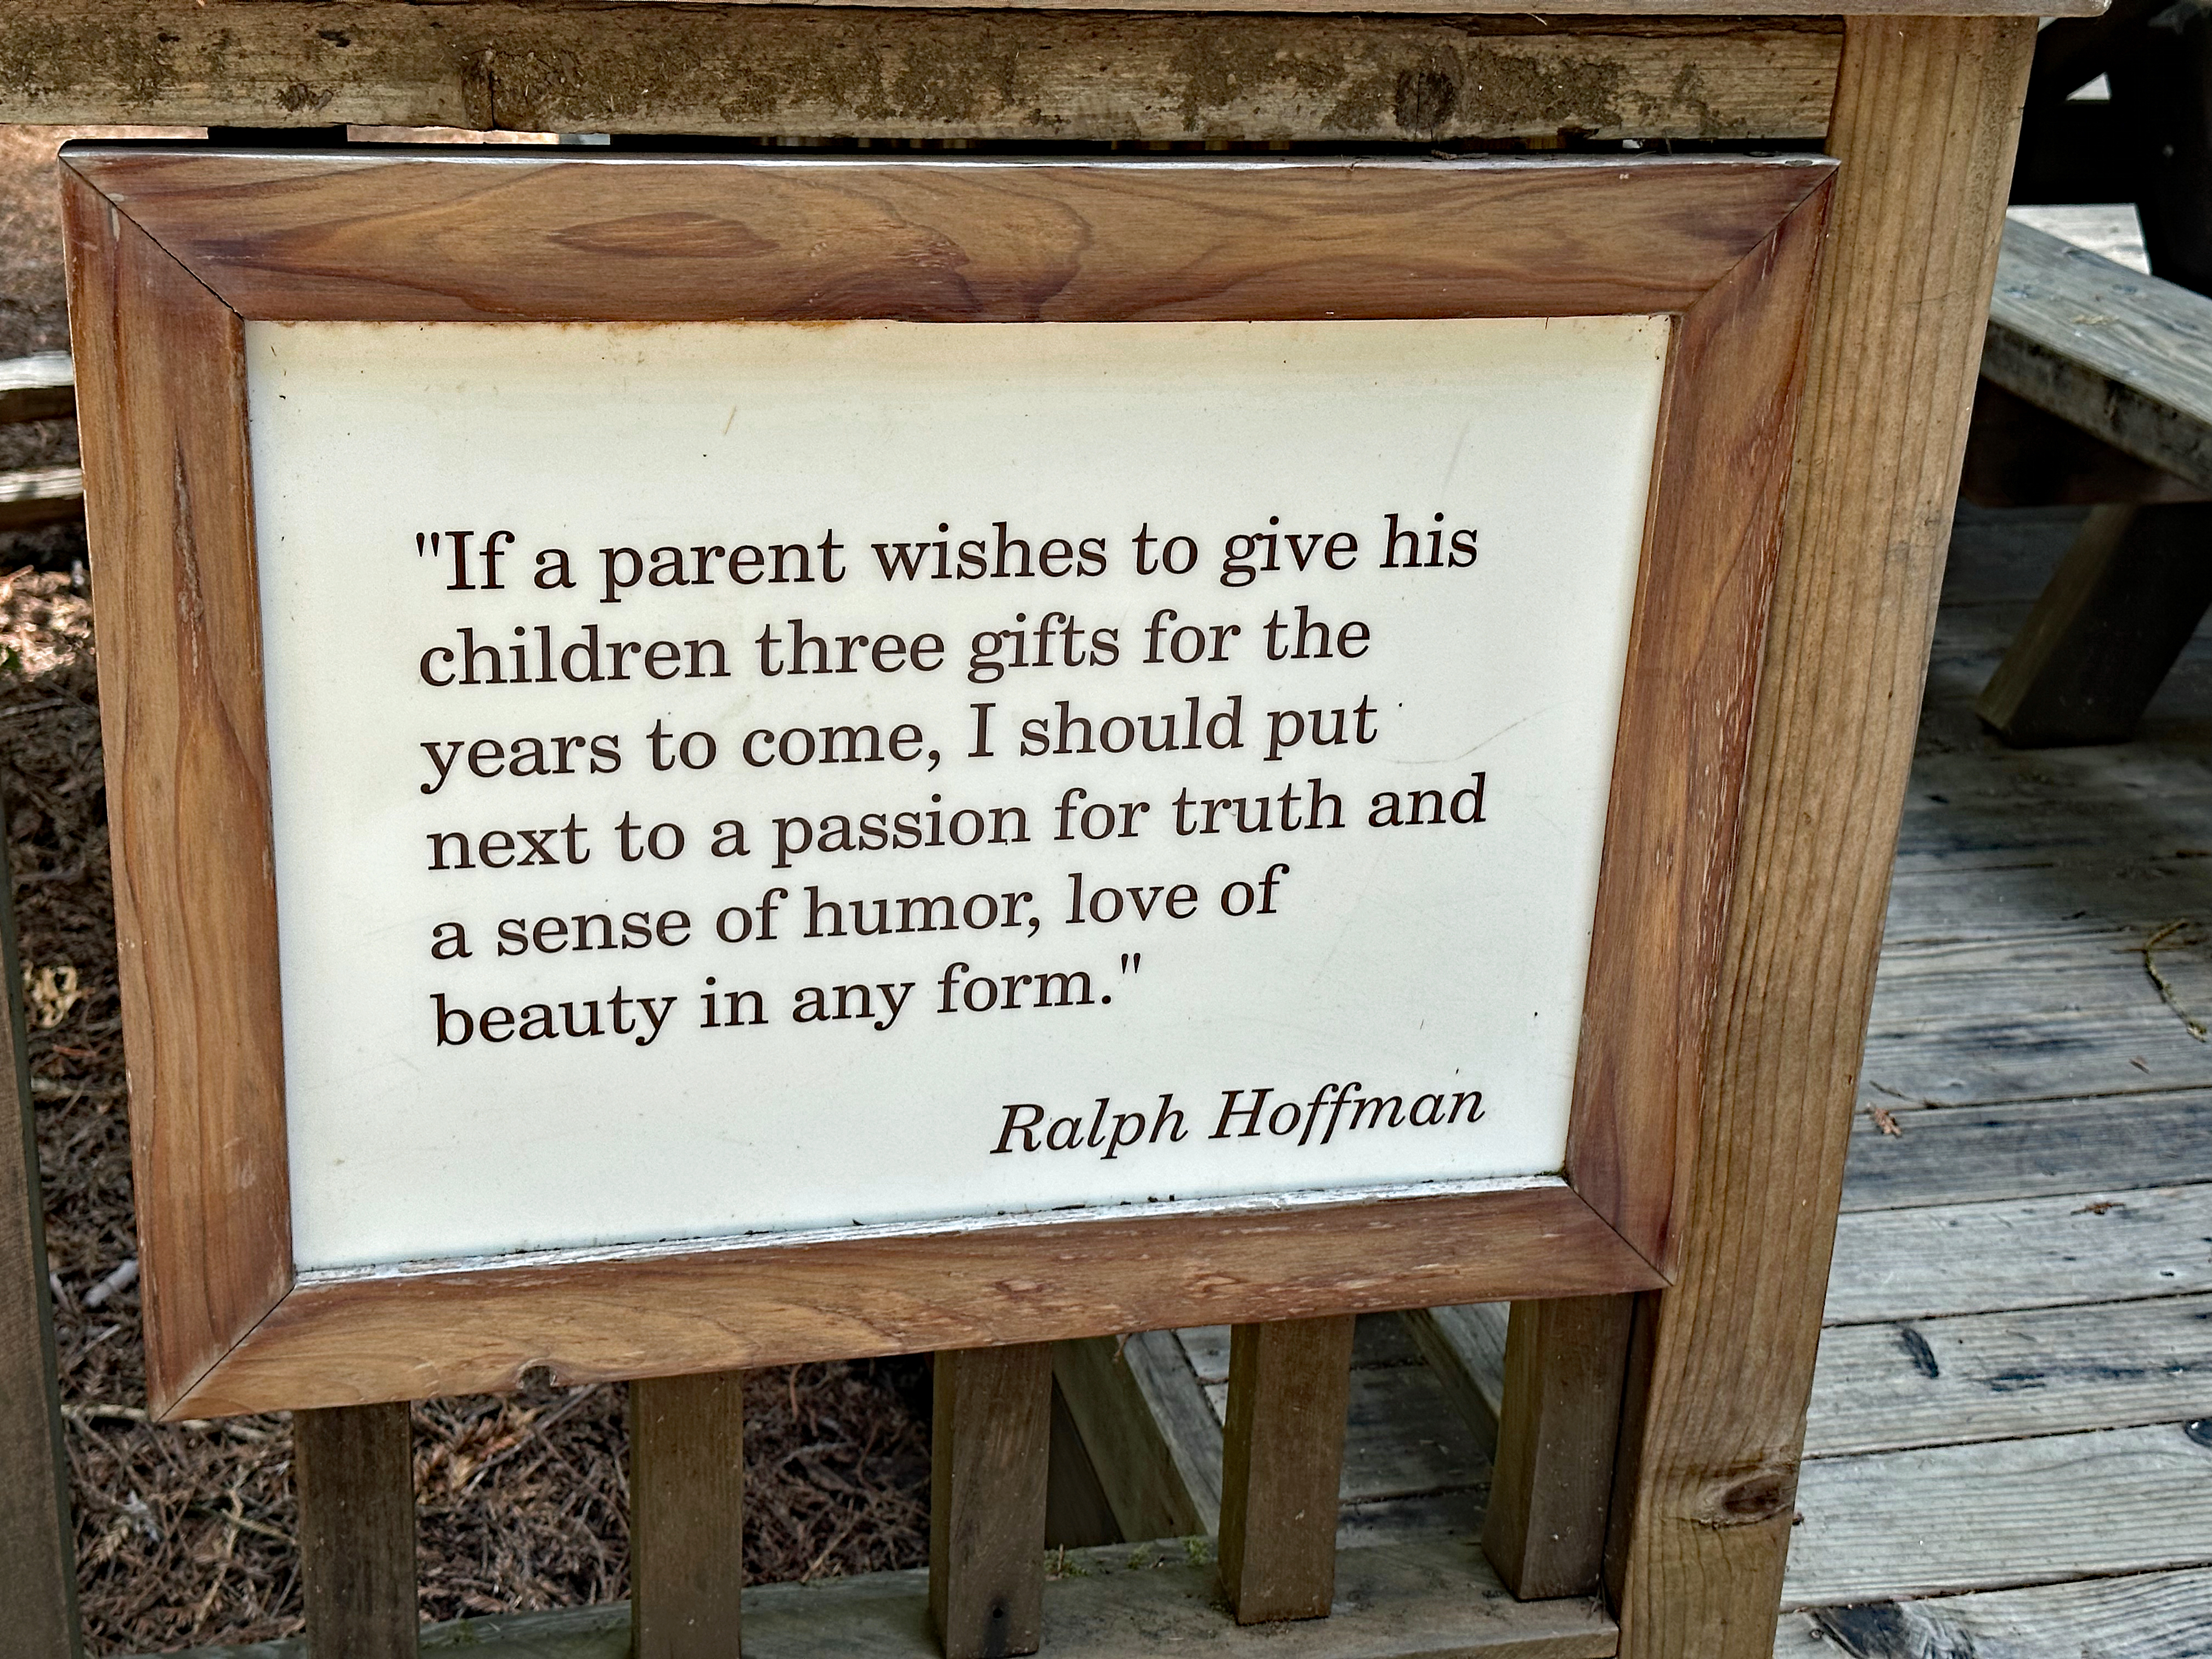 "If a parent wishes to give his
children three gifts for the
years to come, I should put
next to a passion for truth and
a sense of humor, love of
beauty in any form."
Ralph Hoffman